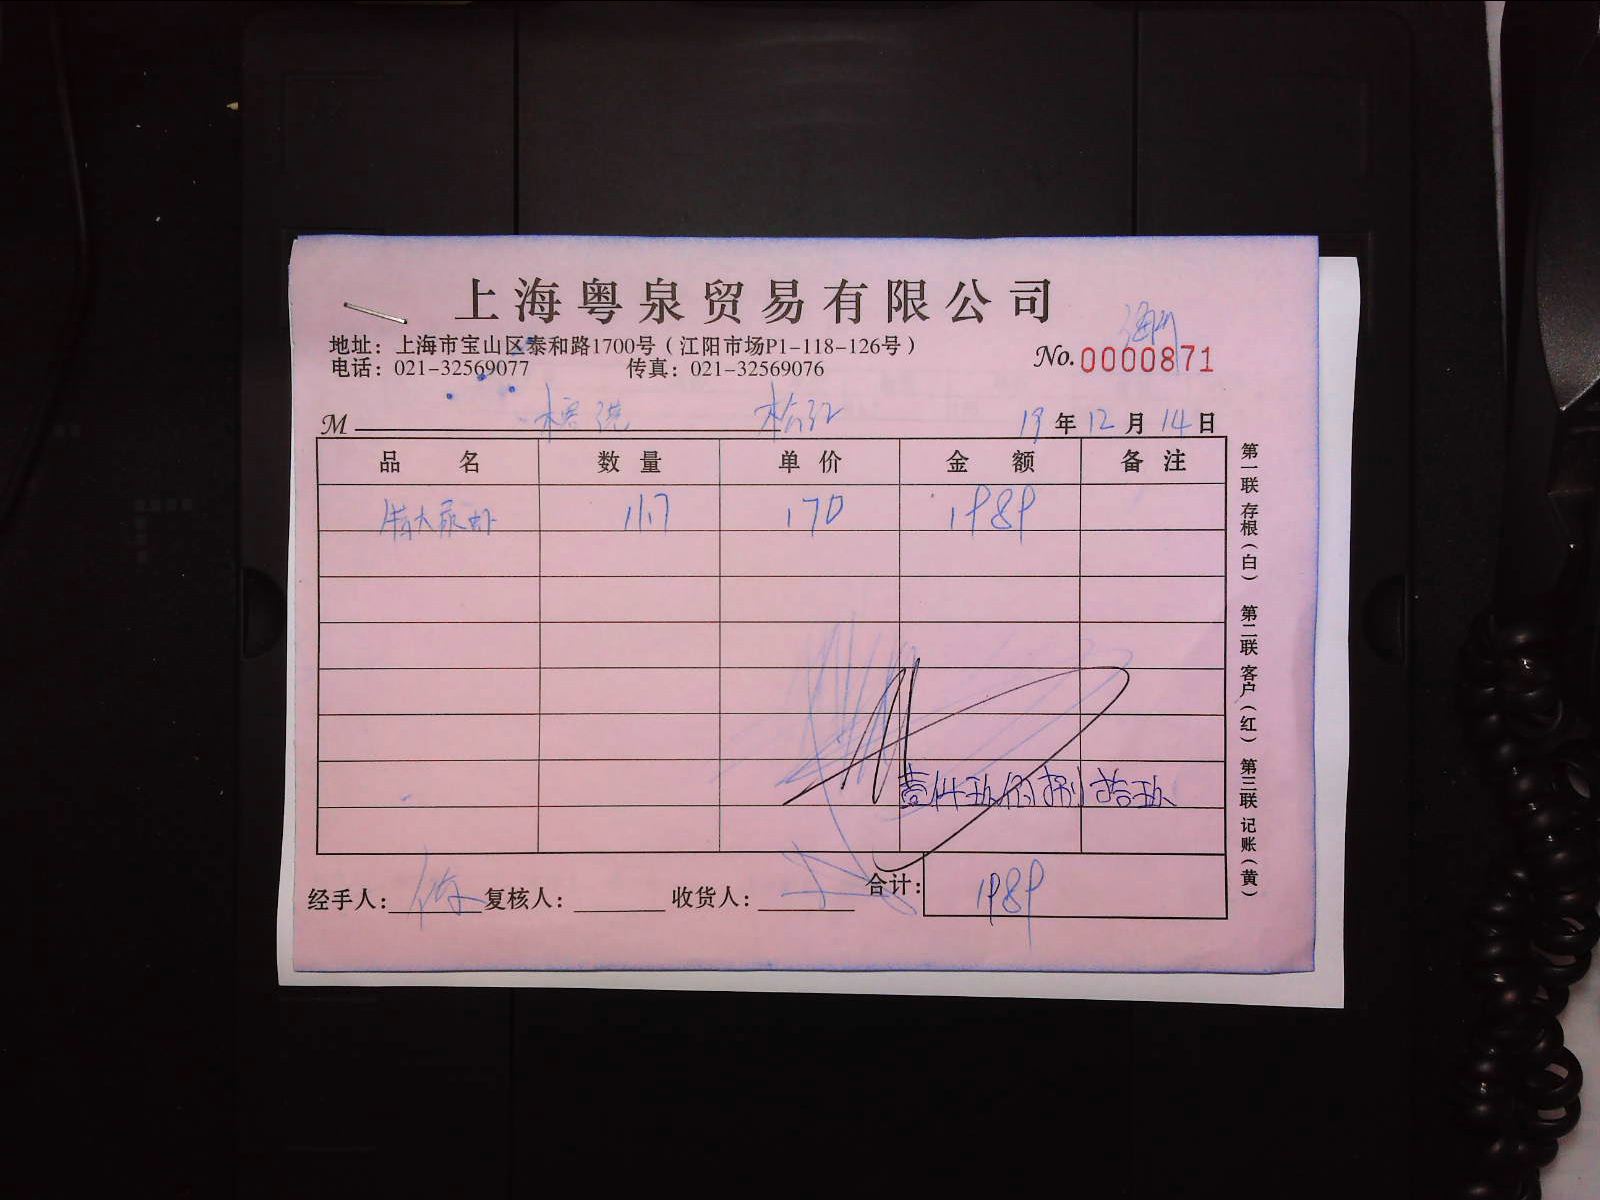 上海粤泉贸易有限公司
地址：上海市宝山区泰和路1700号（江阳市场P1-118-126号）
电话：021-32569077 传真：021-32569076
No.0000871
M 19年12月14日
品名 数量 单价 金额 备注
大尿虾 11.7 170 1989
壹仟玖佰捌拾玖
经手人： 复核人： 收货人： 合计：1989
第一联 存根（白） 第二联 客户（红） 第三联 记账（黄）